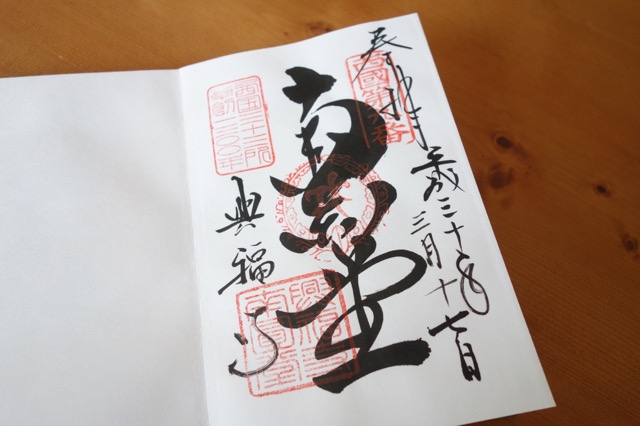 奉拝
平成三十年
三月十七日
西國第九番
南円堂
西国三十三所
草創一三〇〇年
興福寺